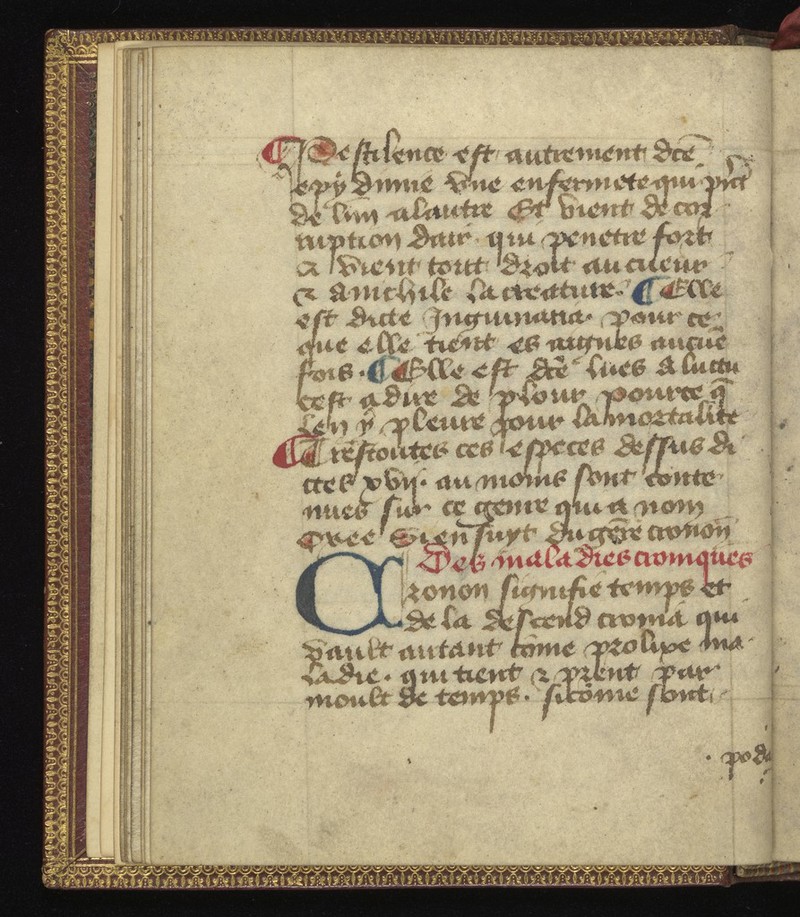 ¶ Pestilence est autrement dcē
epydimie vne enfermete qui prēt
de lun a lautre Et vient de cor
ruption dair· qui penetre fort
& vient tout droit au cueur
& anichile la creature· ¶ Elle
est dicte Inguinaria· pour ce
que elle tient es aignes aucūe
fois· ¶ Elle est dcē lues a luctu
cest a dire de plour pource q̄
len y pleure pour la mortalite
¶ Trestoutes ces especes dessus di
ctes xvij· au moins sont conte
nues sur ce genre qui a nom
Oxee Si ensuyt du gēre cronon
Des maladies croniques
Cronon signifie temps et
de la descend cronia qui
vault autant cōme prolixe ma
ladie· qui tient & prent par
moult de temps· sicōme sont
· poda